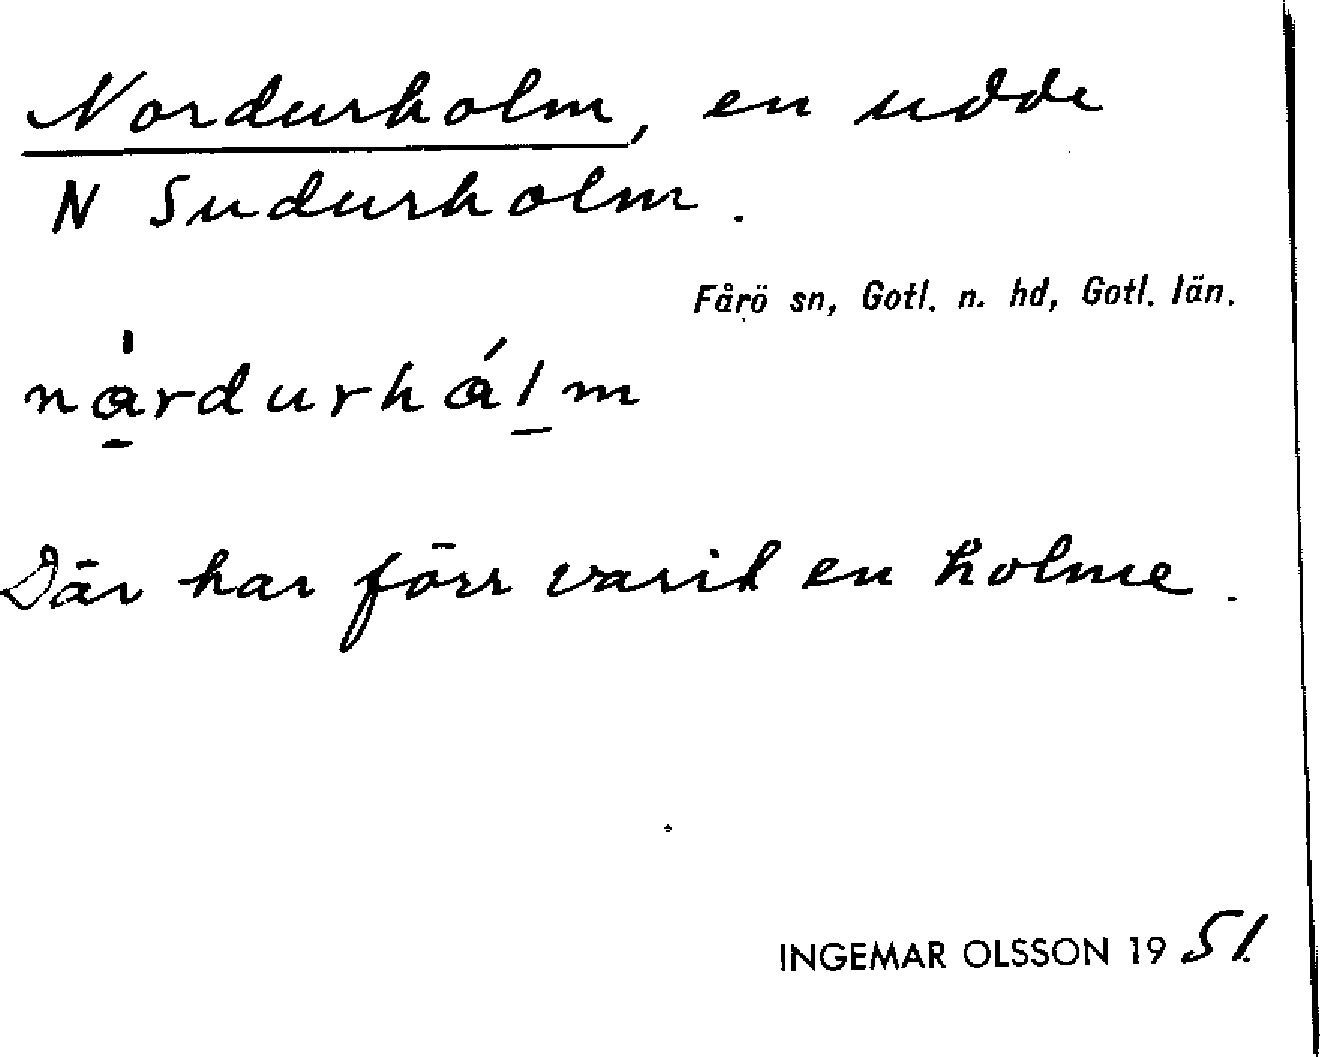 Nordurholm, en udde
N Sudurholm.
Fårö sn, Gotl. n. hd, Gotl. län.
nɑ̠̍rdurhɑ́l̠m
Där har förr varit en holme.
INGEMAR OLSSON 1951.